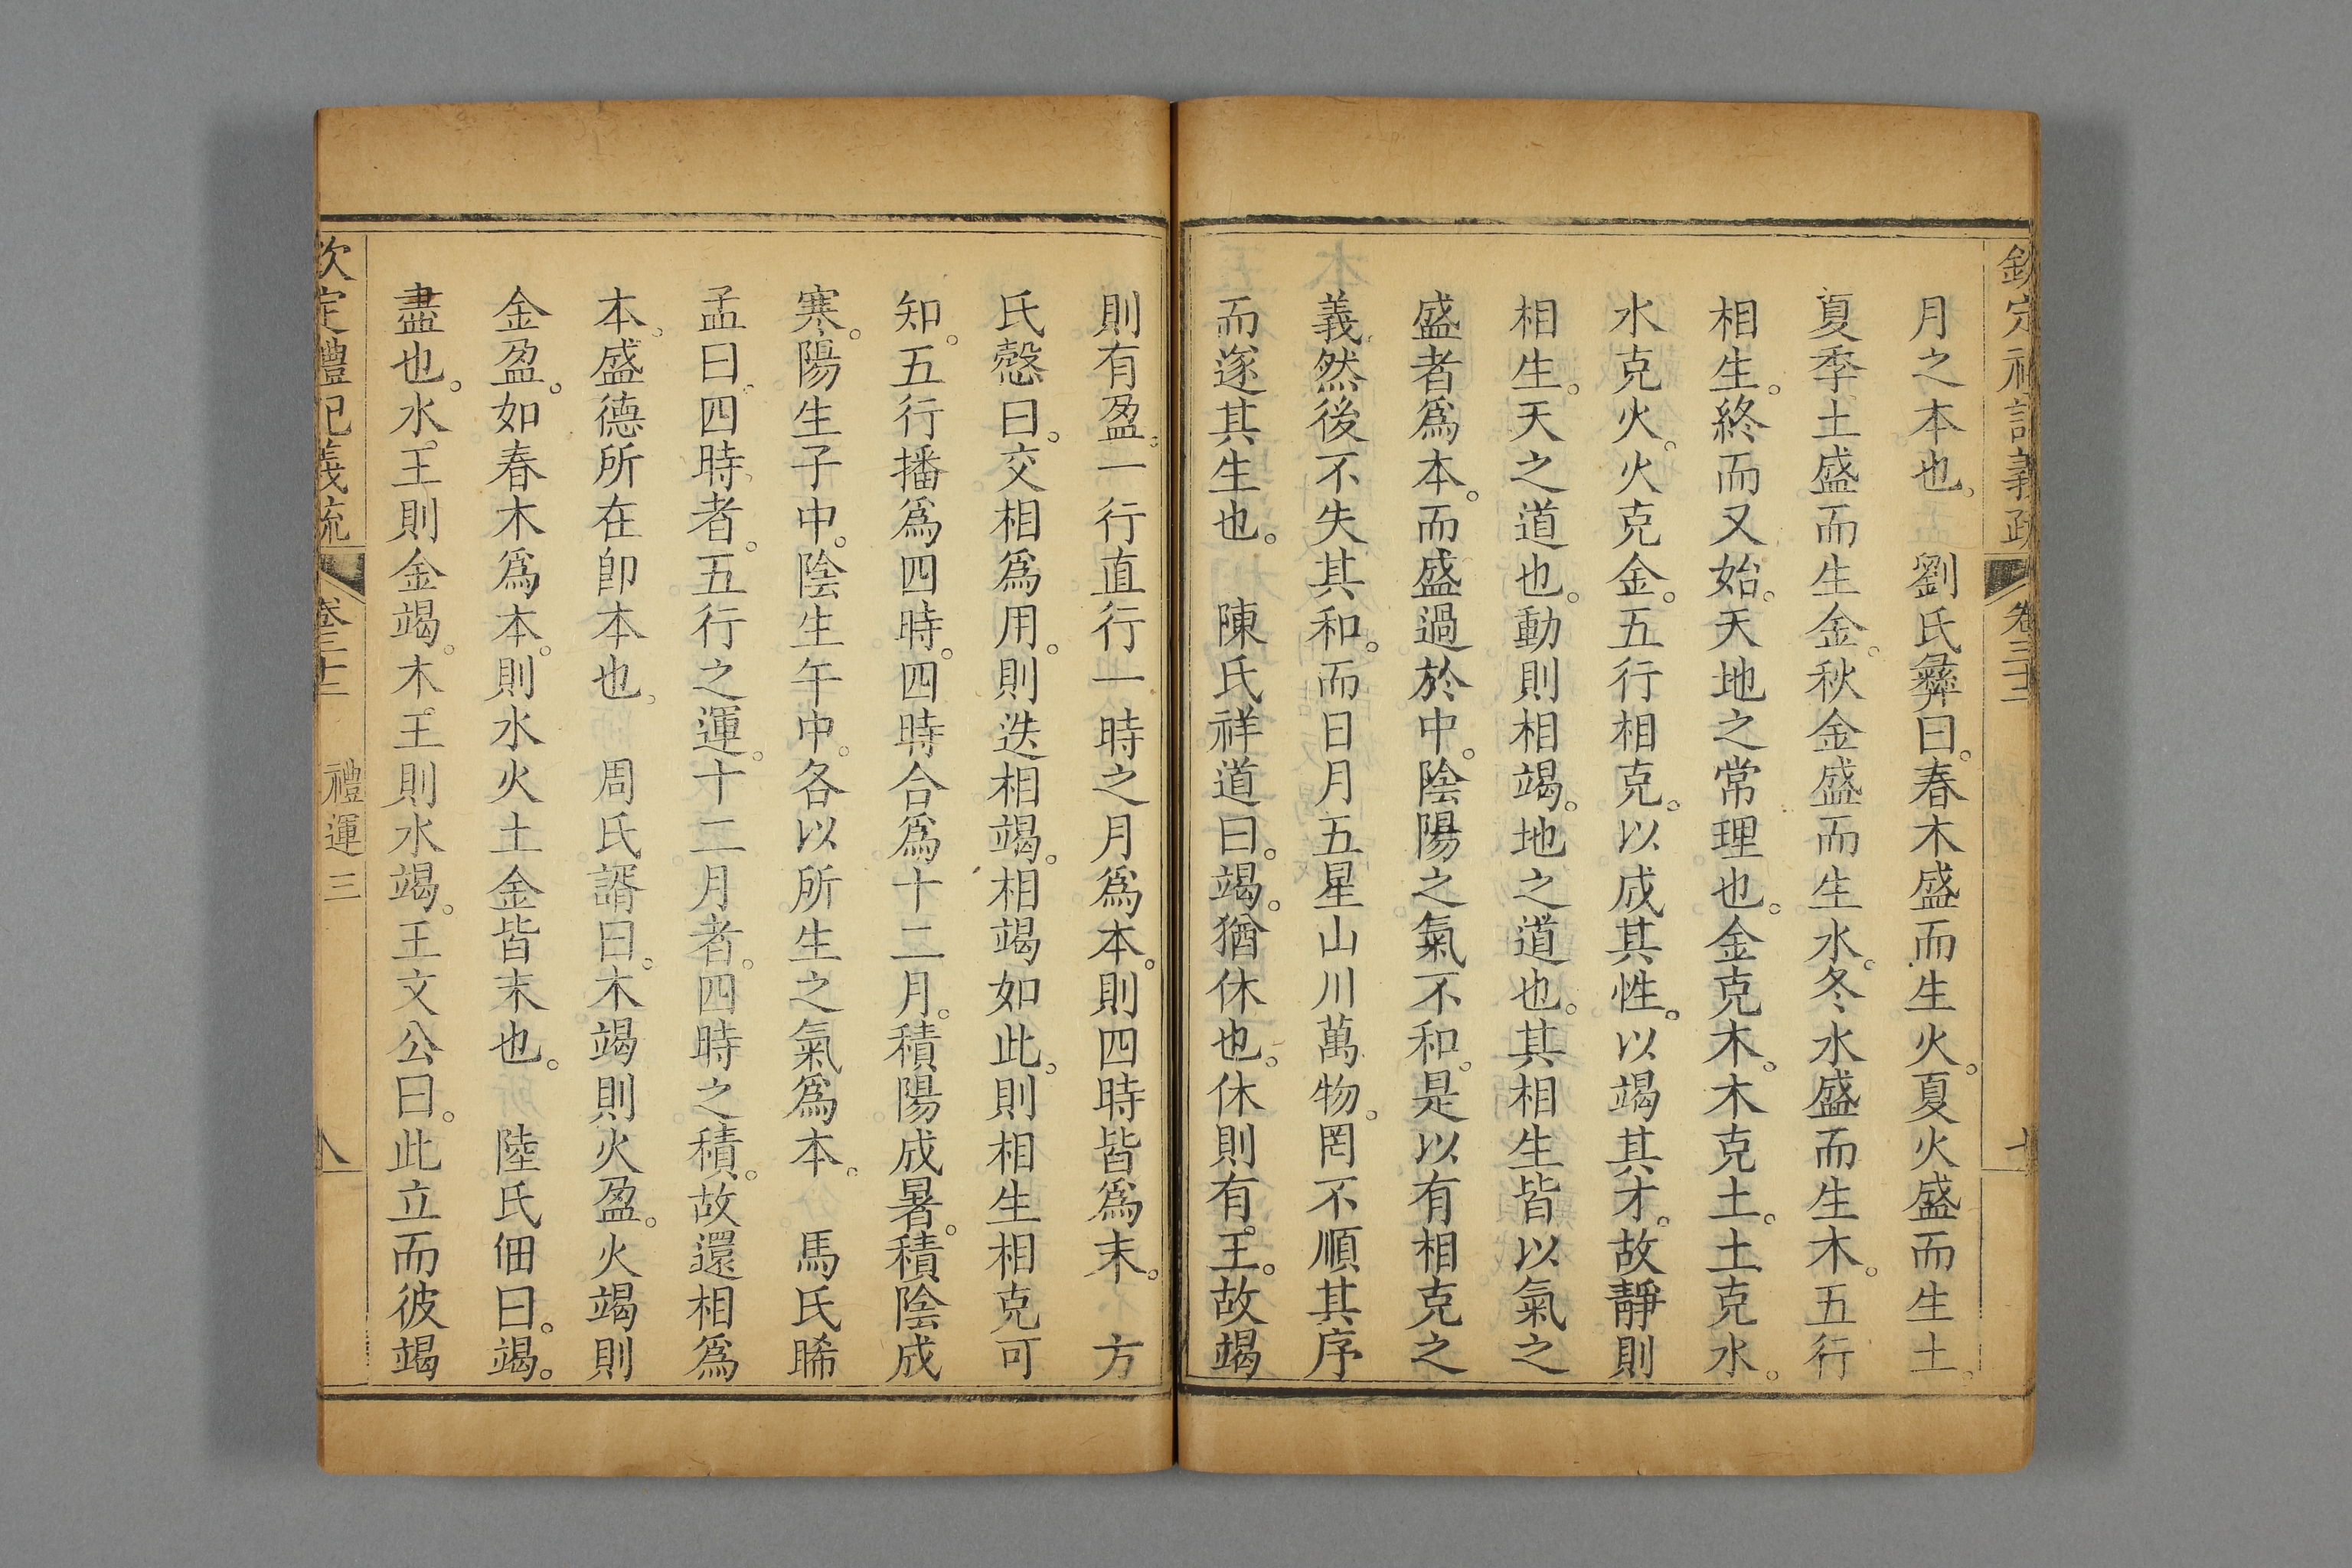 欽定禮記義疏 卷三十二 七
月之本也。 劉氏彝曰。春木盛而生火。夏火盛而生土。
夏季土盛而生金。秋金盛而生水。冬水盛而生木。五行
相生。終而又始。天地之常理也。金克木。木克土。土克水。
水克火。火克金。五行相克。以成其性。以竭其才。故靜則
相生。天之道也。動則相竭。地之道也。其相生皆以氣之
盛者爲本。而盛過於中。陰陽之氣不和。是以有相克之
義。然後不失其和。而日月五星山川萬物。罔不順其序
而遂其生也。 陳氏祥道曰。竭。猶休也。休則有王。故竭
則有盈。一行直行一時之月爲本。則四時皆爲末。 方
氏慤曰。交相爲用。則迭相竭。相竭如此。則相生相克可
知。五行播爲四時。四時合爲十二月。積陽成暑。積陰成
寒。陽生子中。陰生午中。各以所生之氣爲本。 馬氏晞
孟曰。四時者。五行之運。十二月者。四時之積。故還相爲
本。盛德所在卽本也。 周氏諝曰。木竭則火盈。火竭則
金盈。如春木爲本。則水火土金皆末也。 陸氏佃曰。竭。
盡也。水王則金竭。木王則水竭。王文公曰。此立而彼竭
欽定禮記義疏 卷三十二 禮運三 八